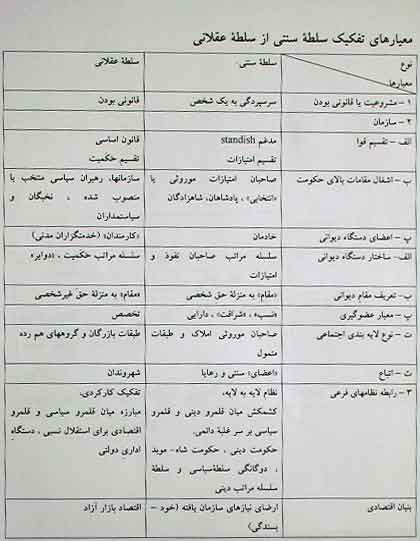 معیارهای تفکیک سلطهٔ سنتی از سلطهٔ عقلانی
نوع
معیارها
سلطهٔ سنتی
سلطهٔ عقلانی
۱ – مشروعیت یا قانونی بودن
سرسپردگی به یک شخص
قانونی بودن
۲ – سازمان
الف – تقسیم قوا
مدغم standish
تقسیم امتیازات
قانون اساسی
تقسیم حکمیت
ب – اشغال مقامات بالای حکومت
صاحبان امتیازات موروثی یا
«انتخابی» ، پادشاهان، شاهزادگان
سازمانها، رهبران سیاسی منتخب یا
منصوب شده ، نخبگان و
سیاستمداران
پ – اعضای دستگاه دیوانی
خادمان
«کارمندان» (خدمتگزاران مدنی)
الف – ساختار دستگاه دیوانی
سلسله مراتب صاحبان نفوذ و
امتیازات
سلسله مراتب حکمیت ، «دوایر»
ب – تعریف مقام دیوانی
«مقام» به منزلهٔ حق شخصی
«مقام» به منزلهٔ حق غیرشخصی
پ – معیار عضوگیری
«نسب» ، «شرافت» ، دارایی
تخصص
ت – نوع لایه بندی اجتماعی
صاحبان موروثی املاک و طبقات
متمول
طبقات بازرگان و گروههای هم رده
ث – اتباع
«اعضای» سنتی و رعایا
شهروندان
۳ – رابطه نظامهای فرعی
نظام لایه به لایه،
کشمکش میان قلمرو دینی و قلمرو
سیاسی بر سر غلبهٔ دائمی.
حکومت دینی ، حکومت شاه – موید
، دوگانگی سلطهٔ سیاسی و سلطهٔ
سلسله مراتب دینی
تفکیک کارکردی،
مبارزه میان قلمرو سیاسی و قلمرو
اقتصادی برای استقلال نسبی ، دستگاه
اداری دولتی
بنیان اقتصادی
ارضای نیازهای سازمان یافته (خود –
بسندگی)
اقتصاد بازار آزاد